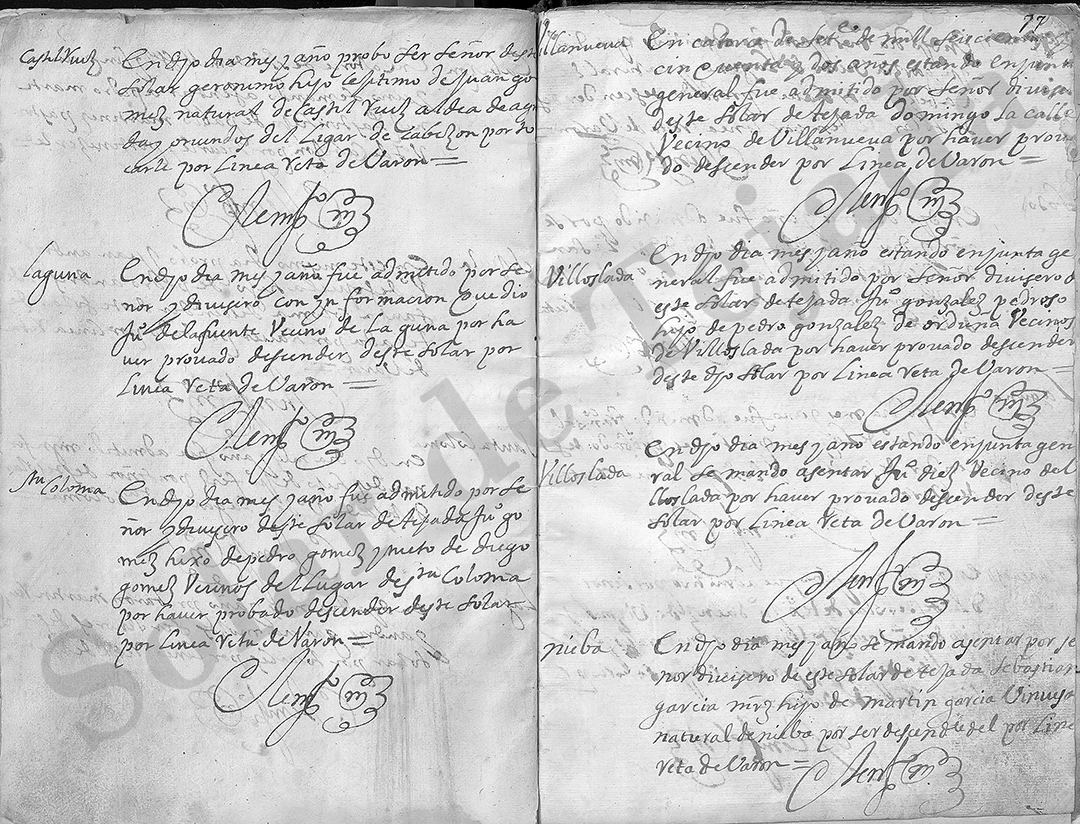 CastilRuiz
En djo dia mes y año probo ser señor deste
solar geronimo hijo lesitimo de Juan go
mez natural de Castil Ruiz aldea de agre
da y oriundos del lugar de Cabezon por to
carle por linea reta de Varon =
Laguna
En djo dia mes y año fue admitido por se
ñor y divisero con ynformacion que dio
Juº de la fuente Vecino de Laguna por ha
ver provado descender deste solar por
linea reta de Varon =
Sta Coloma
En djo dia mes y año fue admitido por se
ñor y divisero deste solar de tejada Juº go
mez hixo de pedro gomez y nieto de diego
gomez Vecinos del Lugar de sta Coloma
por haver probado descender deste solar
por linea reta de Varon =
77
Villanueva
En catorce de setе de mill seiscientos
cinquenta y dos años estando en junta
general fue admitido por señor divisero
deste solar de tejada domingo la calle
Vecino de Villanueva por haver prova
do descender por linea de Varon =
Villoslada
En djo dia mes y año estando en junta ge
neral fue admitido por señor divisero d
este solar de tejada Juº gonzalez pedroso
hijo de pedro gonzalez de orduña Vecinos
de Villoslada por haver provado descender
deste djo solar por linea reta de Varon =
Villoslada
En djo dia mes y año estando en junta gen
eral se mando asentar Juº diez Vecino del
lloslada por haver provado descender deste
solar por linea reta de Varon =
nieba
En djo dia mes y año se mando asentar por se
ñor divisero de este solar de tejada sebastian
garcia mrz hijo de martin garcia Vinuesa
natural de nieba por ser descendte del por line
reta de Varon =
Solar de Tejada